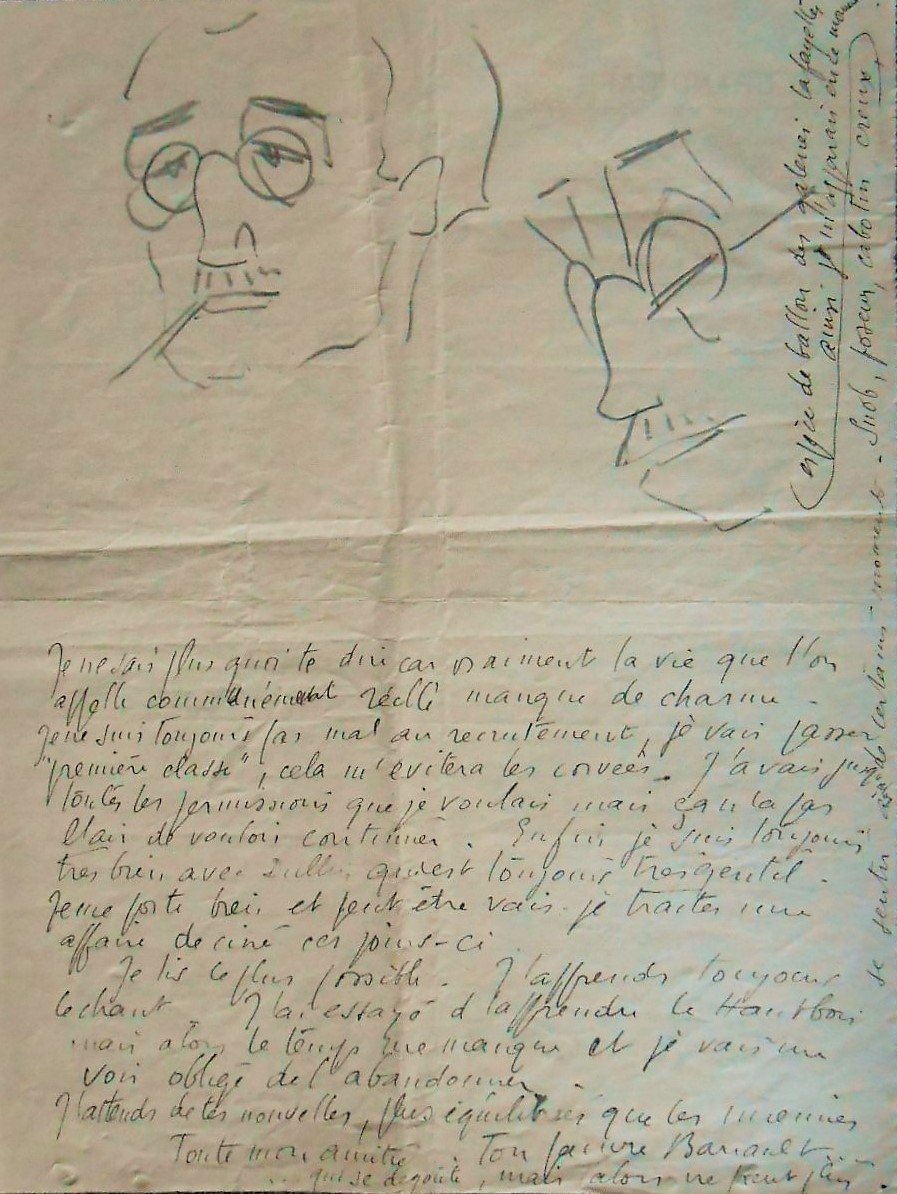 Je ne sais plus quoi te dire car vraiment la vie que l'on
appelle communément réelle manque de charme -
Je ne suis toujours pas mal au recrutement, je vais passer
"première classe", cela m'évitera les corvées. J'avais jusqu'
toutes les permissions que je voulais mais ça n'a pas
l'air de vouloir continuer. Enfin je suis toujours
très bien avec qui est toujours très gentil.
Je me porte bien et peut être vais-je traiter une
affaire de ciné ces jours-ci
Je lis le plus possible. J'apprends toujours
le chant J'ai essayé d'apprendre le Hautbois
mais alors le temps me manque et je vais me
voir obligé de l'abandonner.
J'attends de tes nouvelles, plus équilibrées que les miennes
Toute mon amitié. Ton pauvre Barrault...
... qui se dégoûte, mais alors ne peut plus
se sentir à certains moments - Snob, poseur, cabotin creux,
(espèce de ballon des galeries lafayette
ainsi je m'apparais en ce